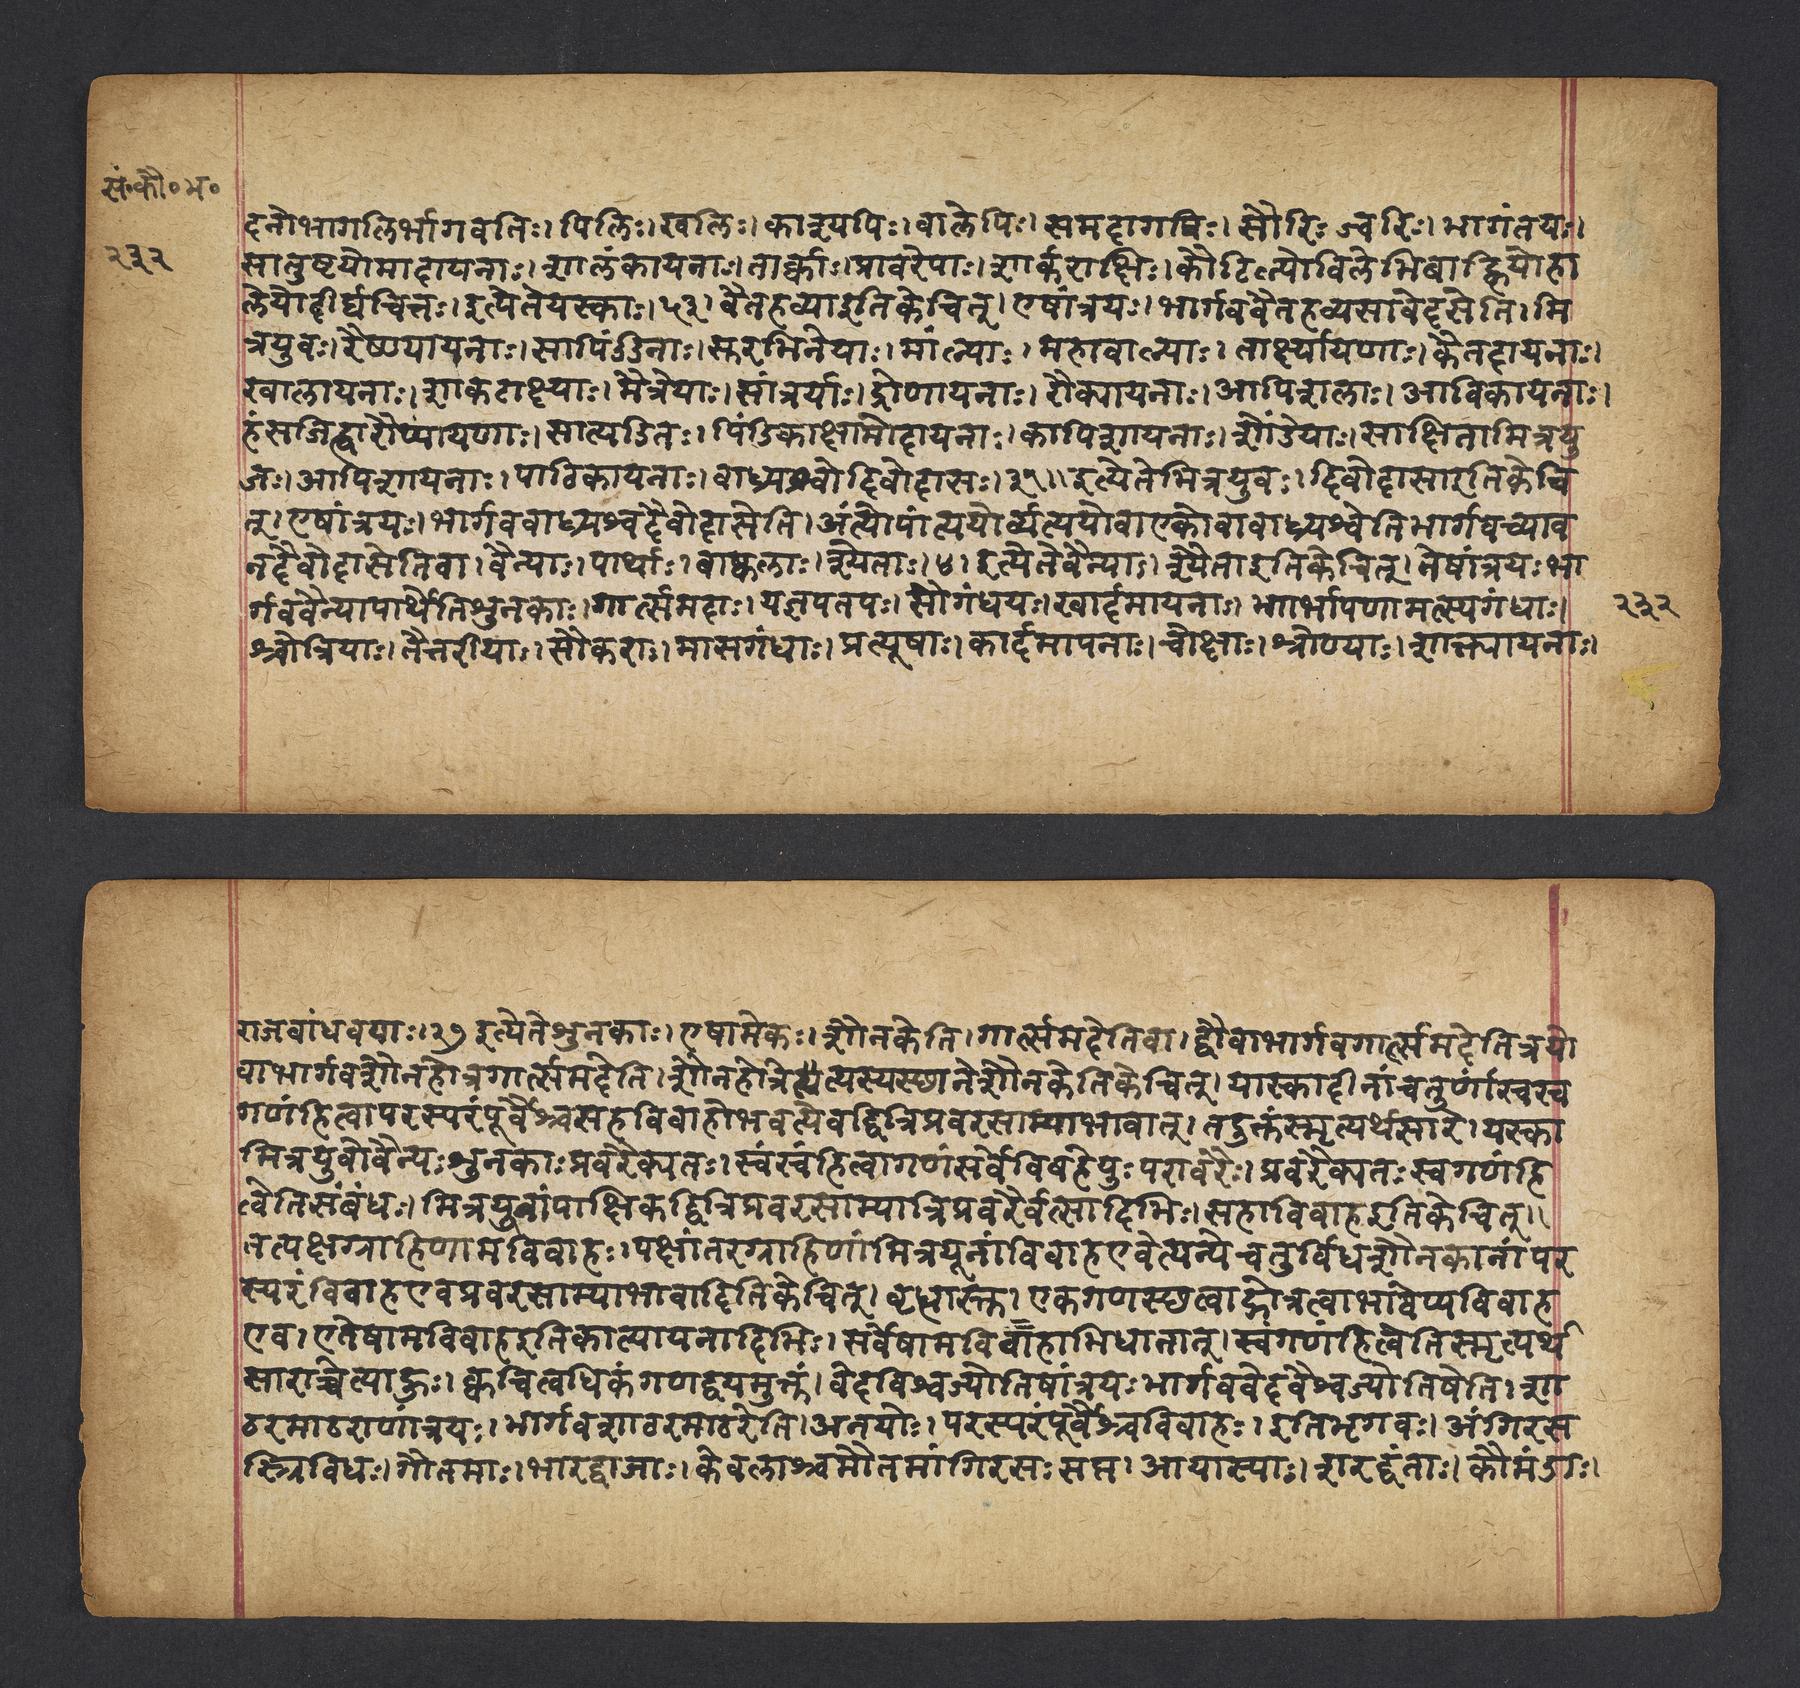 सं॰कौ॰भ॰
२३२
दनोभागलिर्भागवतिः। पिलिः। खलिः। काश्यपिः। वालेपिः। समदागपिः। सौरिः ज्वरिः। भागंतयः।
सातुष्टयोमादायनाः। शालंकायनाः। तार्क्काः। प्रावरेपाः। शार्कराक्षिः। कौटिल्योविलेभिबाह्मियोहा
लेयोदीर्घचित्तः। इत्येतेयस्काः। ५३। वैतहव्याइतिकेचित्। एषांत्रयः। भार्गववैतहव्यसावेदसेति। मि
त्रयुवः। रैष्ण्यायनाः। सापिंडिनाः। सुरभिनेयाः। माल्याः। महावाल्याः। तार्क्ष्यायणाः। कैतदायनाः।
खालायनाः। शाकटाक्ष्याः। मैत्रेयाः। सांत्रर्याः। द्रोणायनाः। रौक्यायनाः। आपिशालाः। आविकायनाः।
हंसजिह्वारौप्यायणाः। सात्यडितः। पिंडिकाक्षामोदायनाः। कापिशायनाः। शौंडेयाः। साक्षितामित्रयु
जः। आपिशायनाः। पाठिकायनाः। वाध्र्यश्वोदिवोदासः। ३५॥ इत्येतेमित्रयुवः। दिवोदासाइतिकेचि
त्। एषांत्रयः। भार्गववाध्र्यश्वदैवोदासेति। अंत्योपांत्ययोर्व्यत्ययोवाएकोवावाध्र्यश्वेतिभार्गवच्याव
नदैवोदासेतिवा। वैन्याः। पार्थाः। बाष्कलाः। श्येताः। ४। इत्येतेवैन्याः। श्यैताइतिकेचित्। तेषांत्रयः भा
र्गववैन्यापार्थेतिशुनकाः। गार्त्समदाः। यज्ञपतपः। सौगंधयः। खार्दमायनाः। गार्भापणामत्स्यगंधाः।
२३२
श्रोत्रियाः। तैत्तरीयाः। सौकराः। मासगंधाः। प्रत्यूषाः। कार्दमापनाः। चौक्षाः। श्रौण्याः। शाक्त्यायनाः।
राजबांधवयाः। २७ इत्येतेशुनकाः। एषामेकः। शौनकेति। गार्त्समदेतिवा। द्वौवाभार्गवगार्त्समदेतित्रयो
वाभार्गवशौनहोत्रगार्त्समदेति। शौनहोत्रेत्यस्यस्छानेशौनकेतिकेचित्। यास्कादीनांचतुर्णांस्वस्व
गणंहित्वापरस्परंपूर्वैश्चसहविवाहोभवत्येवद्वित्रिप्रवरसाम्याभावात्। तदुक्तंस्मृत्यर्थसारे। यस्का
मित्रयुवोवैन्यः शुनकाः प्रवरैक्यतः। स्वंस्वंहित्वागणंसर्वेविवहेयुः परावरैः। प्रवरैक्यतः स्वगणंहि
त्वेतिसंबंधः। मित्रयुवांपाक्षिकद्वित्रिप्रवरसाम्यान्त्रिप्रवरैर्वत्सादिभिः। सहाविवाहइतिकेचित्॥
तत्पक्षग्राहिणामविवाहः। पक्षांतरग्राहिणांमित्रयूनांविवाहएवेत्यन्ये चतुर्विधशौनकानांपर
स्परंविवाहएवप्रवरसाम्याभावादितिकेचित्। एकगणस्छत्वाद्गोत्रत्वाभावेप्यविवाह
एव। एतेषामविवाहइतिकात्यायनादिभिः। सर्वेषामविवाहाभिधानात्। स्वंगणंहित्वेतिस्मृत्यर्थ
साराच्चेत्याहुः। क्वचित्वधिकंगणद्वयमुक्तं। वेदविश्वज्योतिषांत्रयः भार्गववेदवैश्वज्योतिषेति। शा
ठरमाठराणांत्रयः। भार्गवशाठरमाठरेति। अनयोः। परस्परंपूर्वैश्चविवाहः। इतिभृगवः। अंगिरस
स्त्रिविधः। गौतमाः। भारद्वाजाः। केवलाश्चगौतमांगिरसः सप्त। आयास्याः। शारद्वंताः। कौमंडाः।